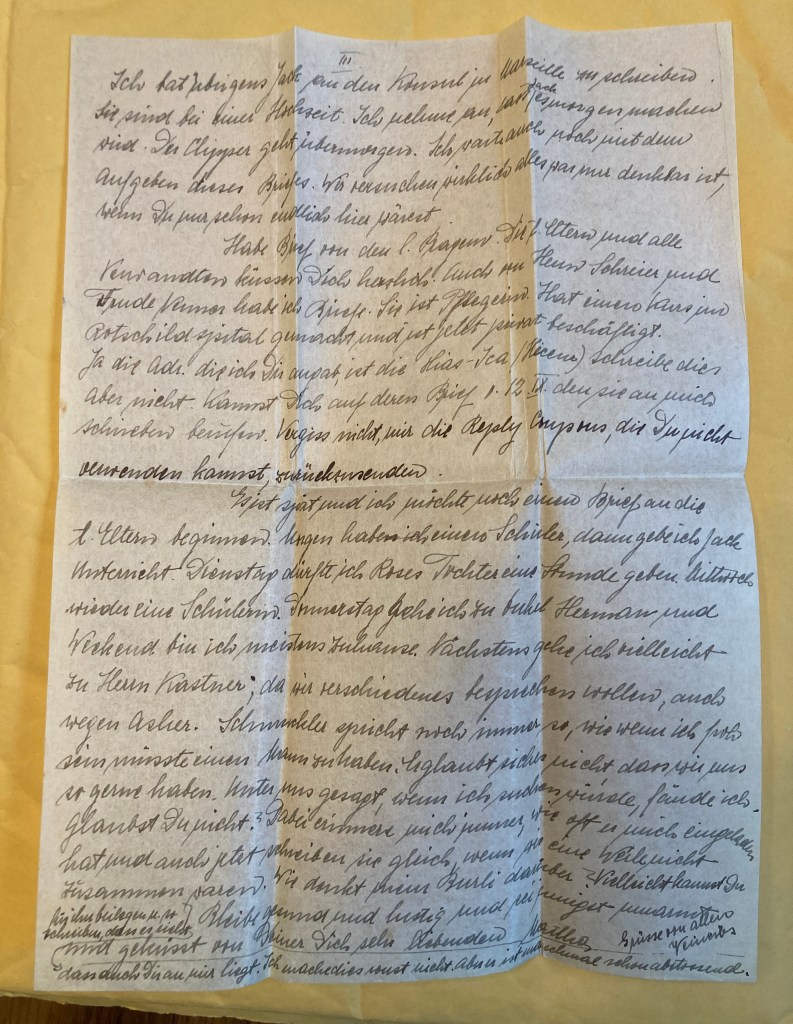 III
Ich bat übrigens Jack an den Konsul in Marseille zu schreiben.
Sie sind bei einer Hochzeit. Ich nehme an, dass Jack es morgen machen
wird. Der Clipper geht übermorgen. Ich warte auch noch mit dem
Aufgeben dieses Briefes. Wir versuchen wirklich alles was nur denkbar ist,
wenn Du nur schon endlich hier wärest.
Habe Brief von den l. Pragern. Die l. Eltern und alle
Verwandten küssen Dich herzlich. Auch von Herrn Schreier und
Trude habe ich Briefe. Sie ist Pflegerin. Hat einen Kurs im
Rotschildspital gemacht und ist jetzt privat beschäftigt.
Ja die Adr. die ich Dir angab, ist die Hias-Ica (Hicem) Schreibe dies
aber nicht. Kannst Dich auf deren Brief v. 12 IX. den sie an mich
schrieben berufen. Vergiss nicht, mir die Reply Coupons, die Du nicht
verwenden kannst, zurückzusenden.
Es ist spät und ich möchte noch einen Brief an die
l. Eltern beginnen. Morgen habe ich einen Schüler, dann gebe ich Jack
Unterricht. Dienstag dürfte ich Roses Tochter eine Stunde geben. Mittwoch
wieder eine Schülerin. Donnerstag gehe ich zu Onkel Herman und
Weekend bin ich meistens zuhause. Nächstens gehe ich vielleicht
zu Herrn Kastner, da wir verschiedenes besprechen wollen, auch
wegen Asher. spricht noch immer so, wie wenn ich froh
sein müsste einen Mann zu haben. Er glaubt sicher nicht dass wir uns
so gerne haben. Unter uns gesagt, wenn ich suchen würde, fände ich.
Glaubst Du nicht? Dabei erinnere mich immer, wie oft er mich eingeladen
hat und auch jetzt schreiben sie gleich, wenn wir eine Weile nicht
zusammen waren. Wie denkt mein Burli darüber? Vielleicht kannst Du
für ihn beilegen u. so
schreiben, dass es nicht
Bleibe gesund und lustig und sei innigst umarmt
und geküsst von Deiner Dich sehr liebenden Martha
Grüsse von allen
dass auch Dir an mir liegt. Ich mache dies sonst nicht. Aber es ist manchmal schon abstossend.